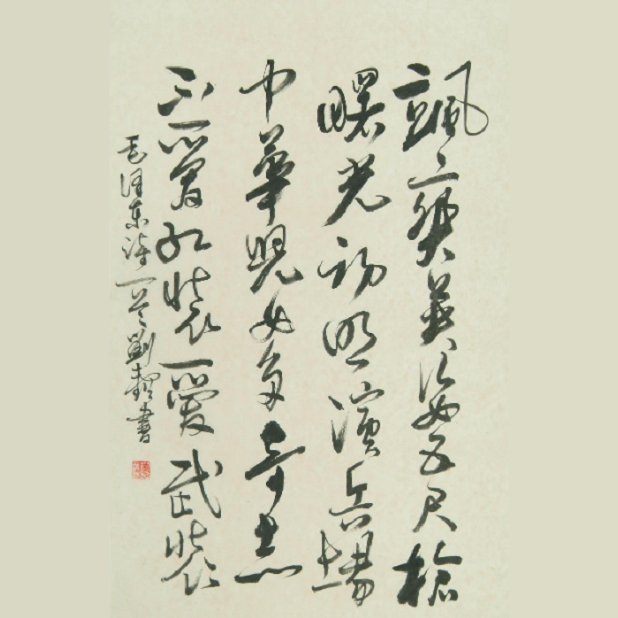 颯爽英姿五尺槍
曙光初照演兵場
中華兒女多奇志
不愛紅裝愛武裝
毛泽东诗一首 劉書